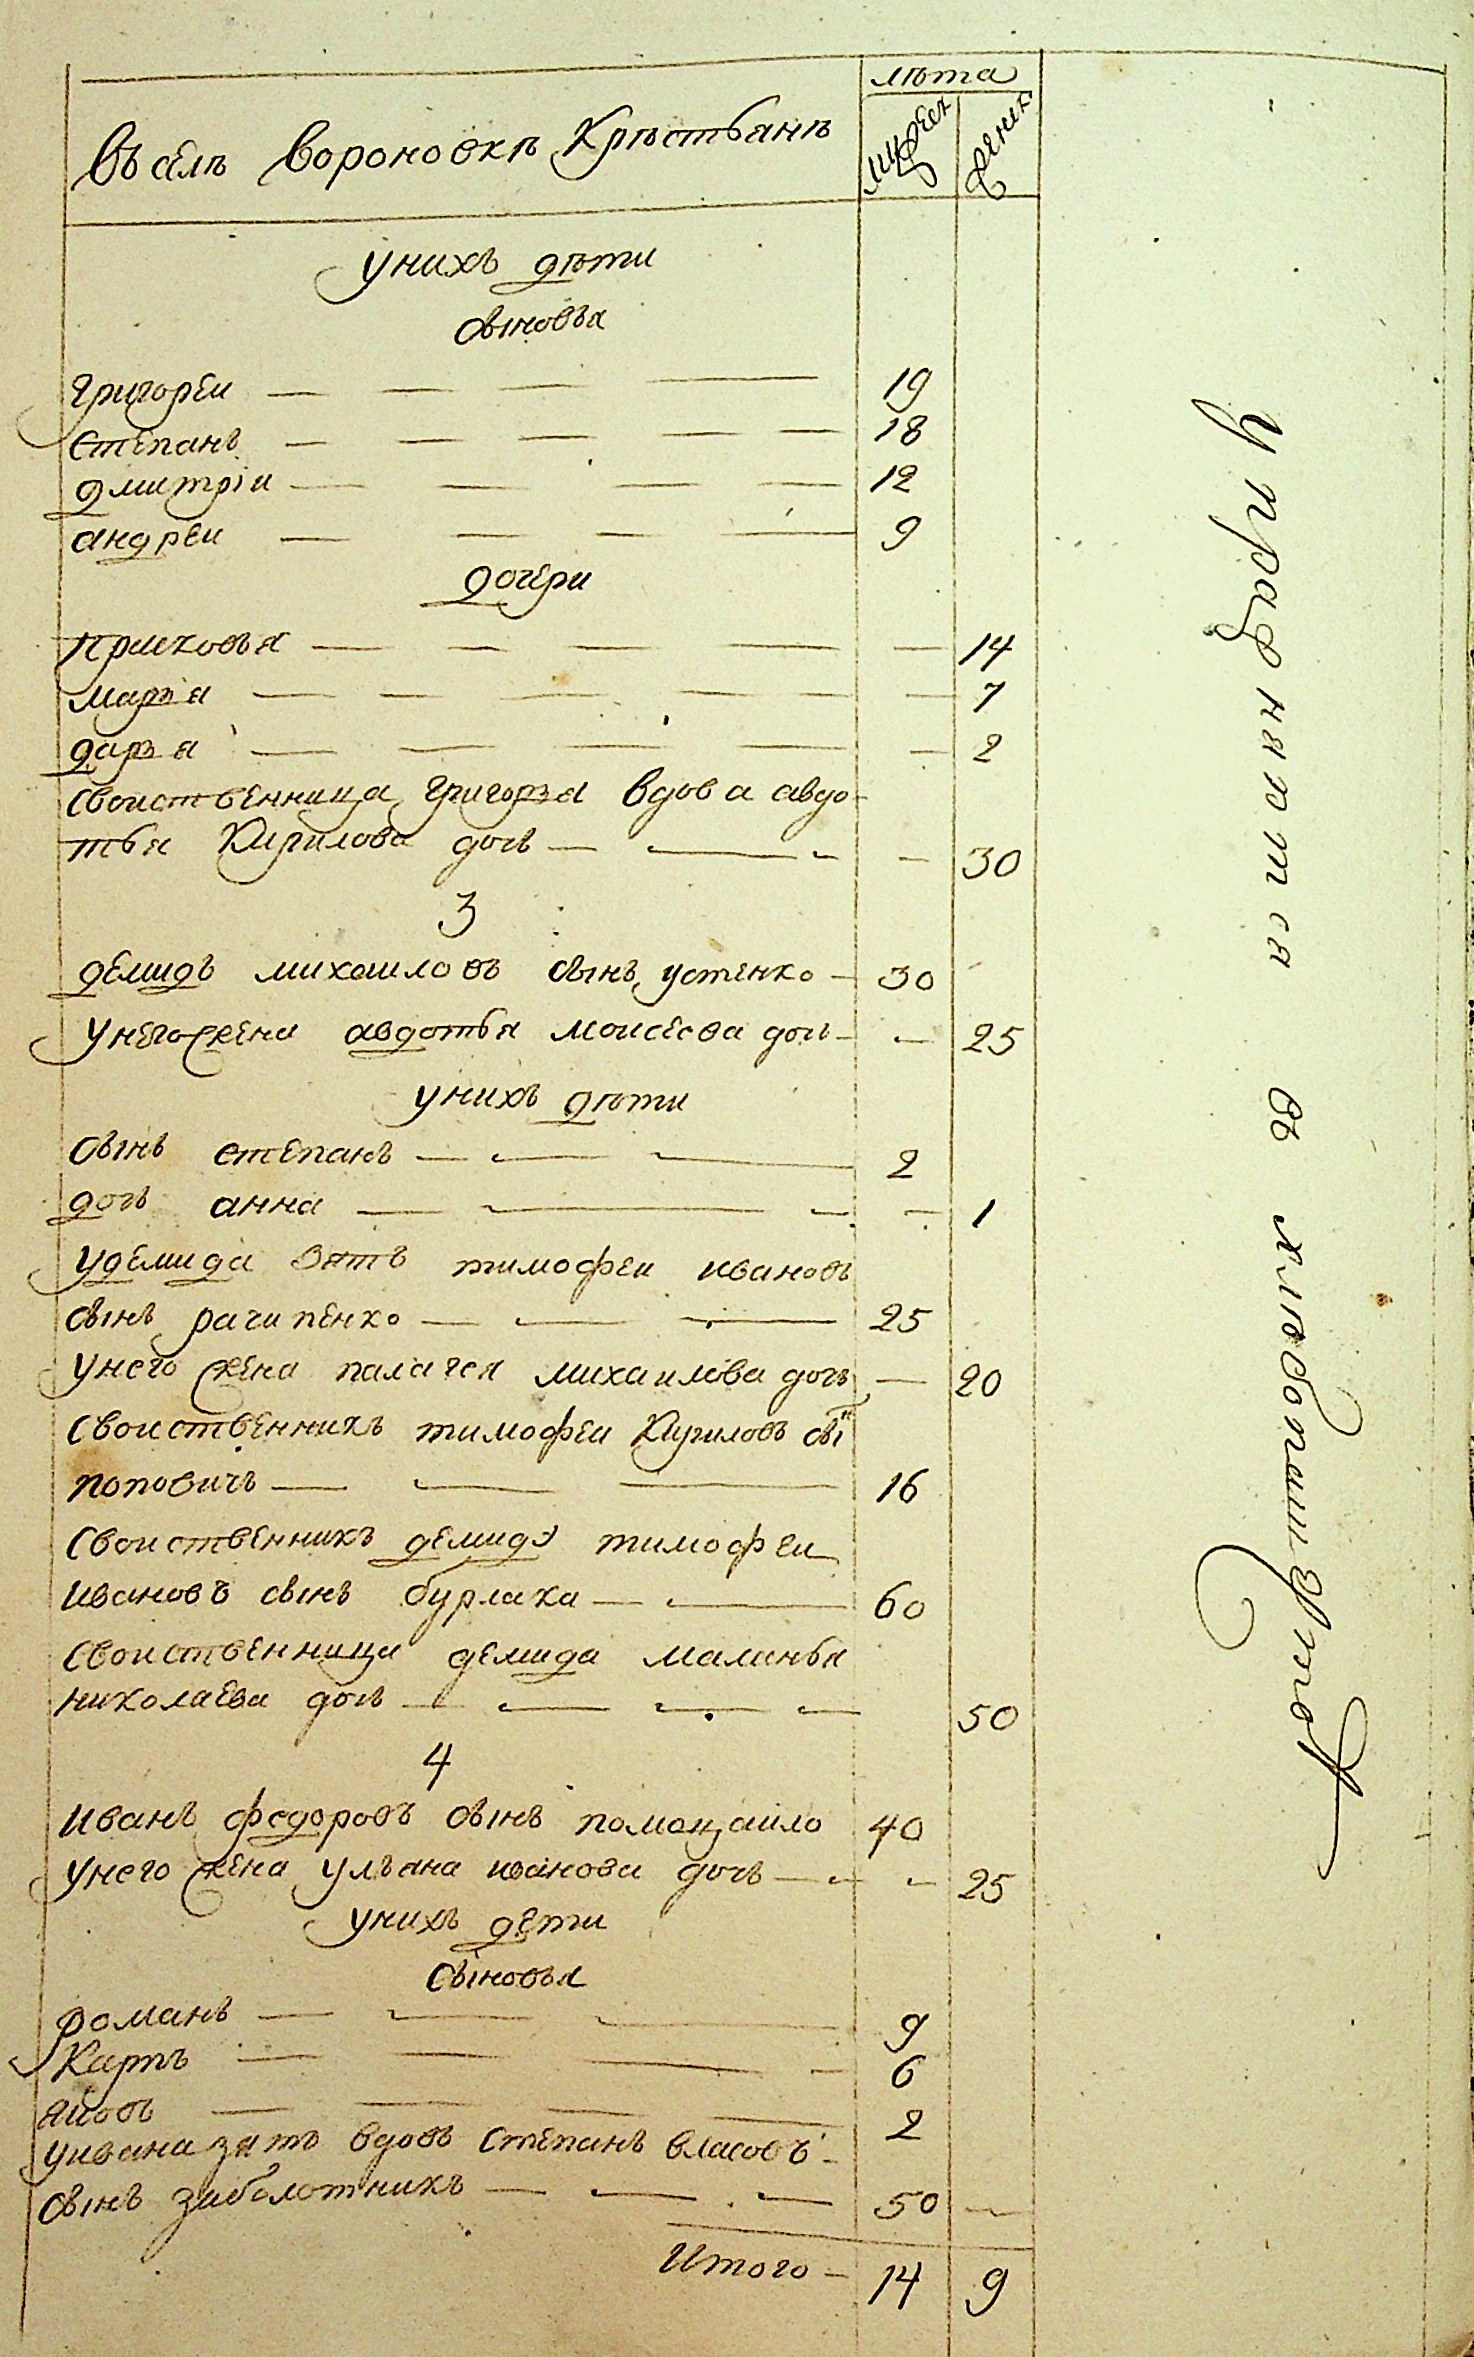 лѣта
въ селѣ вороновкѣ Крѣстьянѣ
мужех
жених
унихъ дѣти
сыновья
григореи — — — — 19
степанъ — — — — — 18
дмитріи — — — — 12
андреи — — — — 9
дочери
прасковья — — — — — 14
марья — — — — — 7
дарья — — — — — 2
своиственница григорья вдова авдо-
тья Кирилова дочь — — — — 30
3
демидъ михаиловъ сынъ устенко — 30
унегожена авдотья моисеева дочь — — 25
унихъ дѣти
сынъ степанъ — — — 2
дочь анна — — — — 1
удемида зять тимофеи ивановъ
сынъ рачипенко — — — 25
унего жена палагея михаилова дочь — 20
своиственникъ тимофеи Кириловъ сын
поповичъ — — — 16
своиственникъ демида тимофеи
ивановъ сынъ бурлака — — 60
своиственница демида маланья
николаева дочь — — — — 50
4
иванъ федоровъ сынъ помощаило 40
унего жена ульяна иванова дочь — — — 25
унихъ дети
сыновья
романъ — — — 9
Карпъ — — — — 6
яковъ — — — — 2
уивана зять вдовъ степанъ власовъ -
сынъ заболотникъ — — — 50 —
Итого — 14 9
упражняются въ хлебопашестве